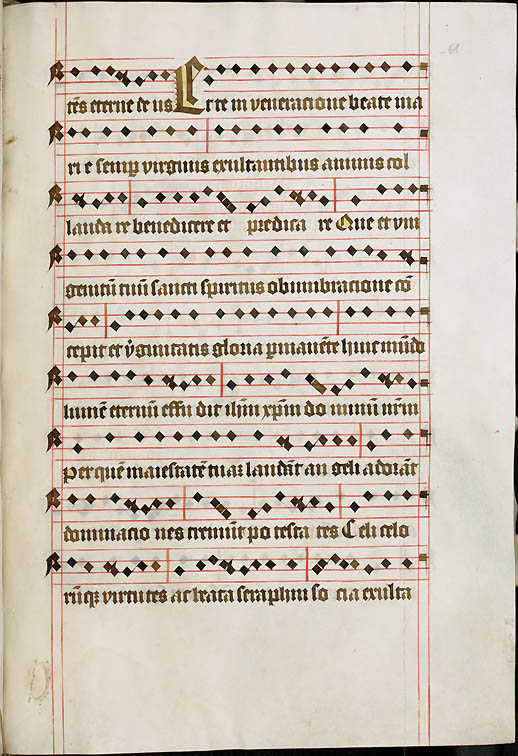 61
tēs eterne de us Et te in veneracione beate ma
ri e semp virginis exultantibus animis col
lauda re benedicere et predica re Que et vni
genitū tuū sancti spiritus obumbracione cō
cepit et v̄ginitatis gloria pmanēte huic mūdo
lumē eternū effu dit ihm̄ xpm̄ do minū nr̄m
Per quē maiestatē tuaʒ laudāt an geli adorāt
dominacio nes tremūt po testa tes Celi celo
rūqʒ virtutes ac beata seraphin so cia exulta